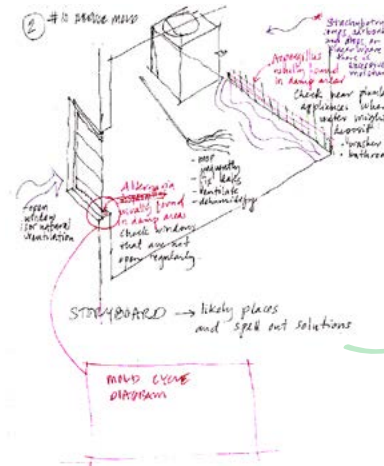 2 # to reduce mold
Stachybotrys
and
where
there is
excessive
moisture
Aspergillus
usually found
in damp areas
Check near
appliances where
water might
deposit
• washer
• bathroom
- mop
frequently
- fix leaks
- ventilate
- dehumidify
Alternaria
usually found
in damp areas
Check windows
that are not
open regularly.
open
window
for natural
ventilation
STORYBOARD → likely places
and spell out solutions
MOLD CYCLE
DIAGRAM